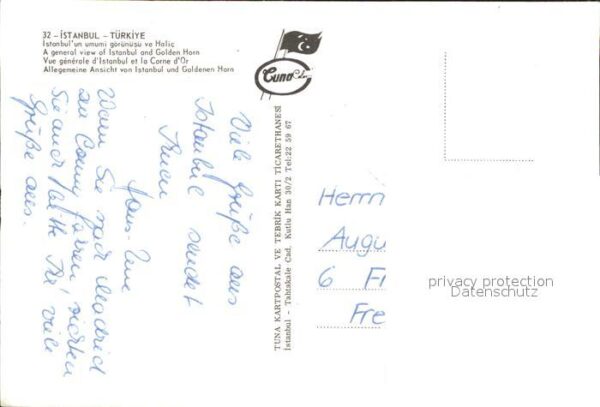 32 - İSTANBUL - TÜRKİYE
İstanbul'un umumi görünüsü ve Haliç
A general view of İstanbul and Golden Horn
Vue générale d'İstanbul et la Corne d'Or
Allgemeine Ansicht von İstanbul und Goldenen Horn
Tuna Color
Viele Grüße aus
Istanbul sendet
Ihnen
Hans-Uwe
Wenn Sie nach Madrid
an Conny
Sie auch bitte
viele
Grüße aus.
TUNA KARTPOSTAL VE TEBRİK KARTI TİCARETHANESİ
İstanbul - Tahtakale Cad. Kutlu Han 30/2 Tel:22 59 67
Herrn
Augu
6 F
Fre
privacy protection
Datenschutz